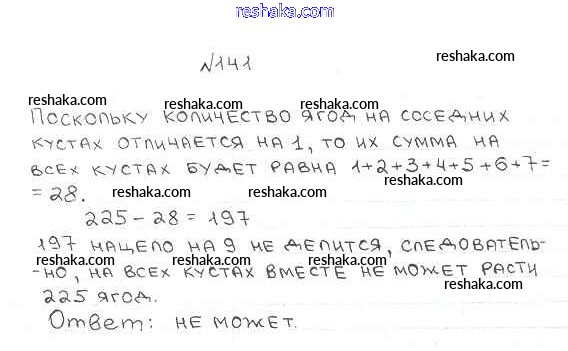 reshaka.com
№141
reshaka.com
reshaka.com reshaka.com reshaka.com
Поскольку количество ягод на соседних
кустах отличается на 1, то их сумма на
всех кустах будет равна 1+2+3+4+5+6+7=
= 28.
reshaka.com reshaka.com reshaka.com
225 - 28 = 197
197 нацело на 9 не делится, следователь-
reshaka.com reshaka.com reshaka.com
-но, на всех кустах вместе не может расти
reshaka.com
225 ягод.
Ответ: не может.